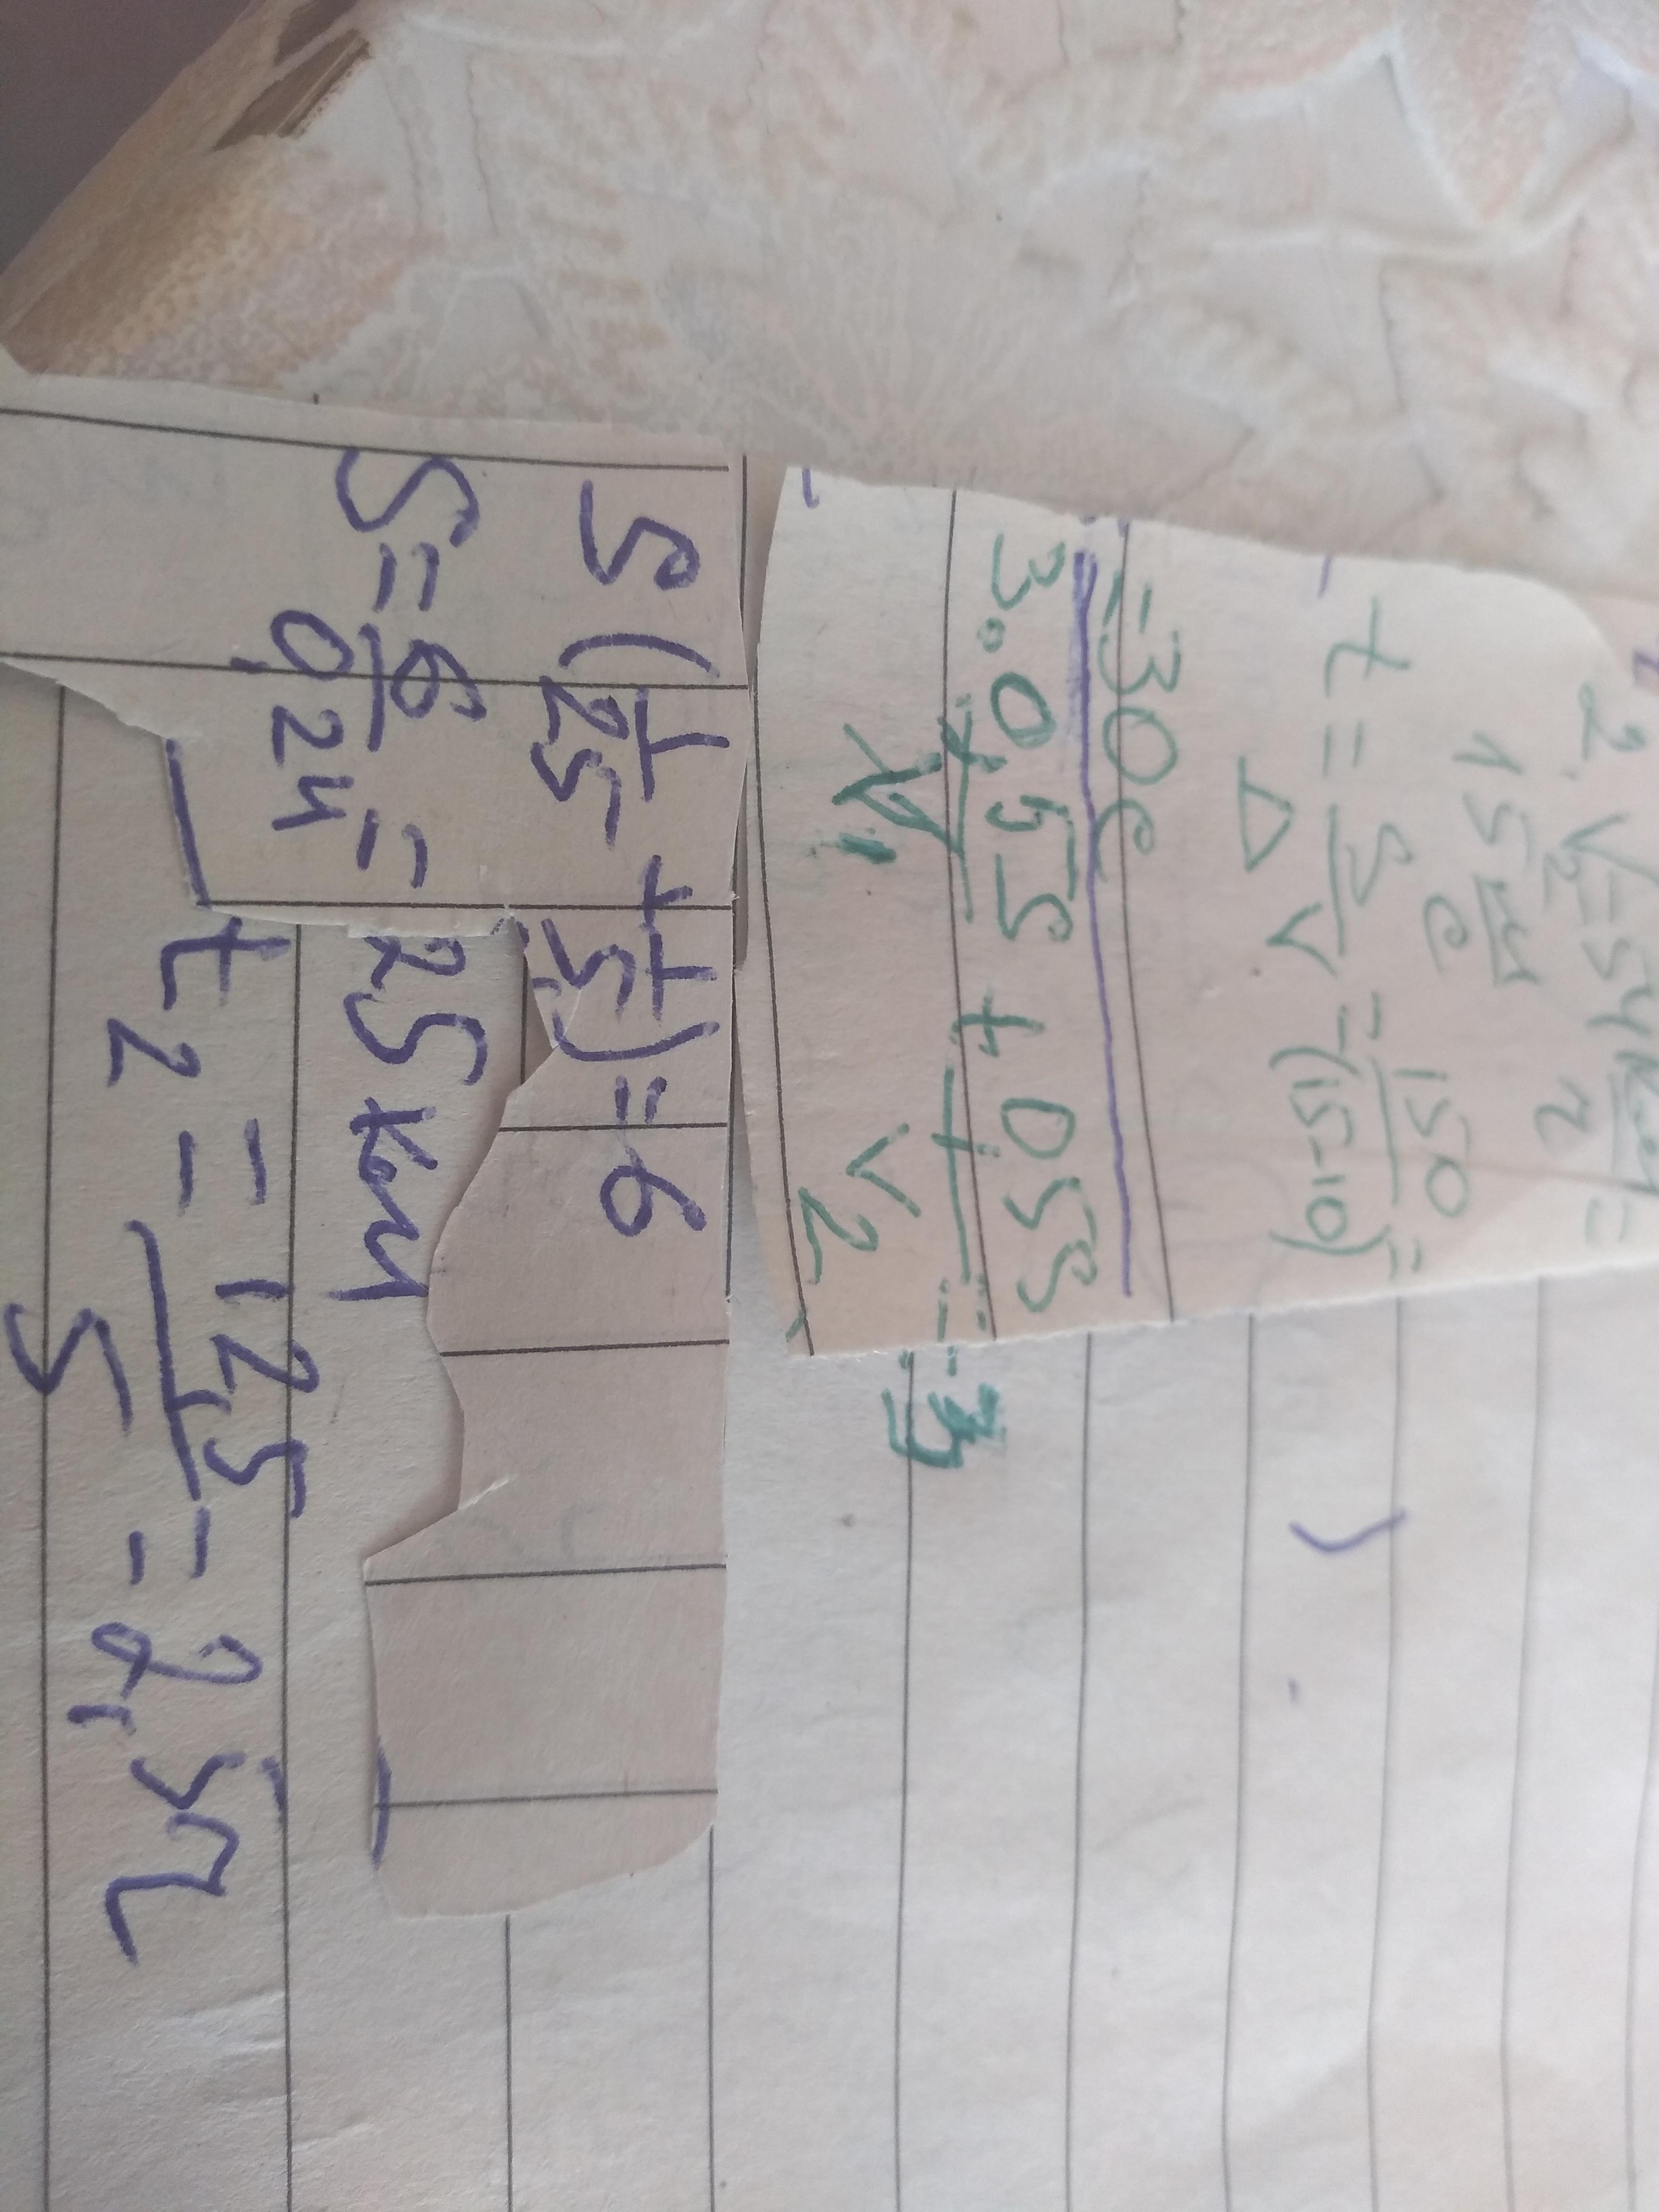 2. V₂=54 км/ч =
15 м/с
t = S/ΔV = 150/(15-10) =
=30с
3. 0,5S/V₁ + 0,5S/V₂ = 3
S(1/25 + 1/5) = 6
S = 6/0,24 = 25км
t₂ = 12,5/5 = 2,5ч